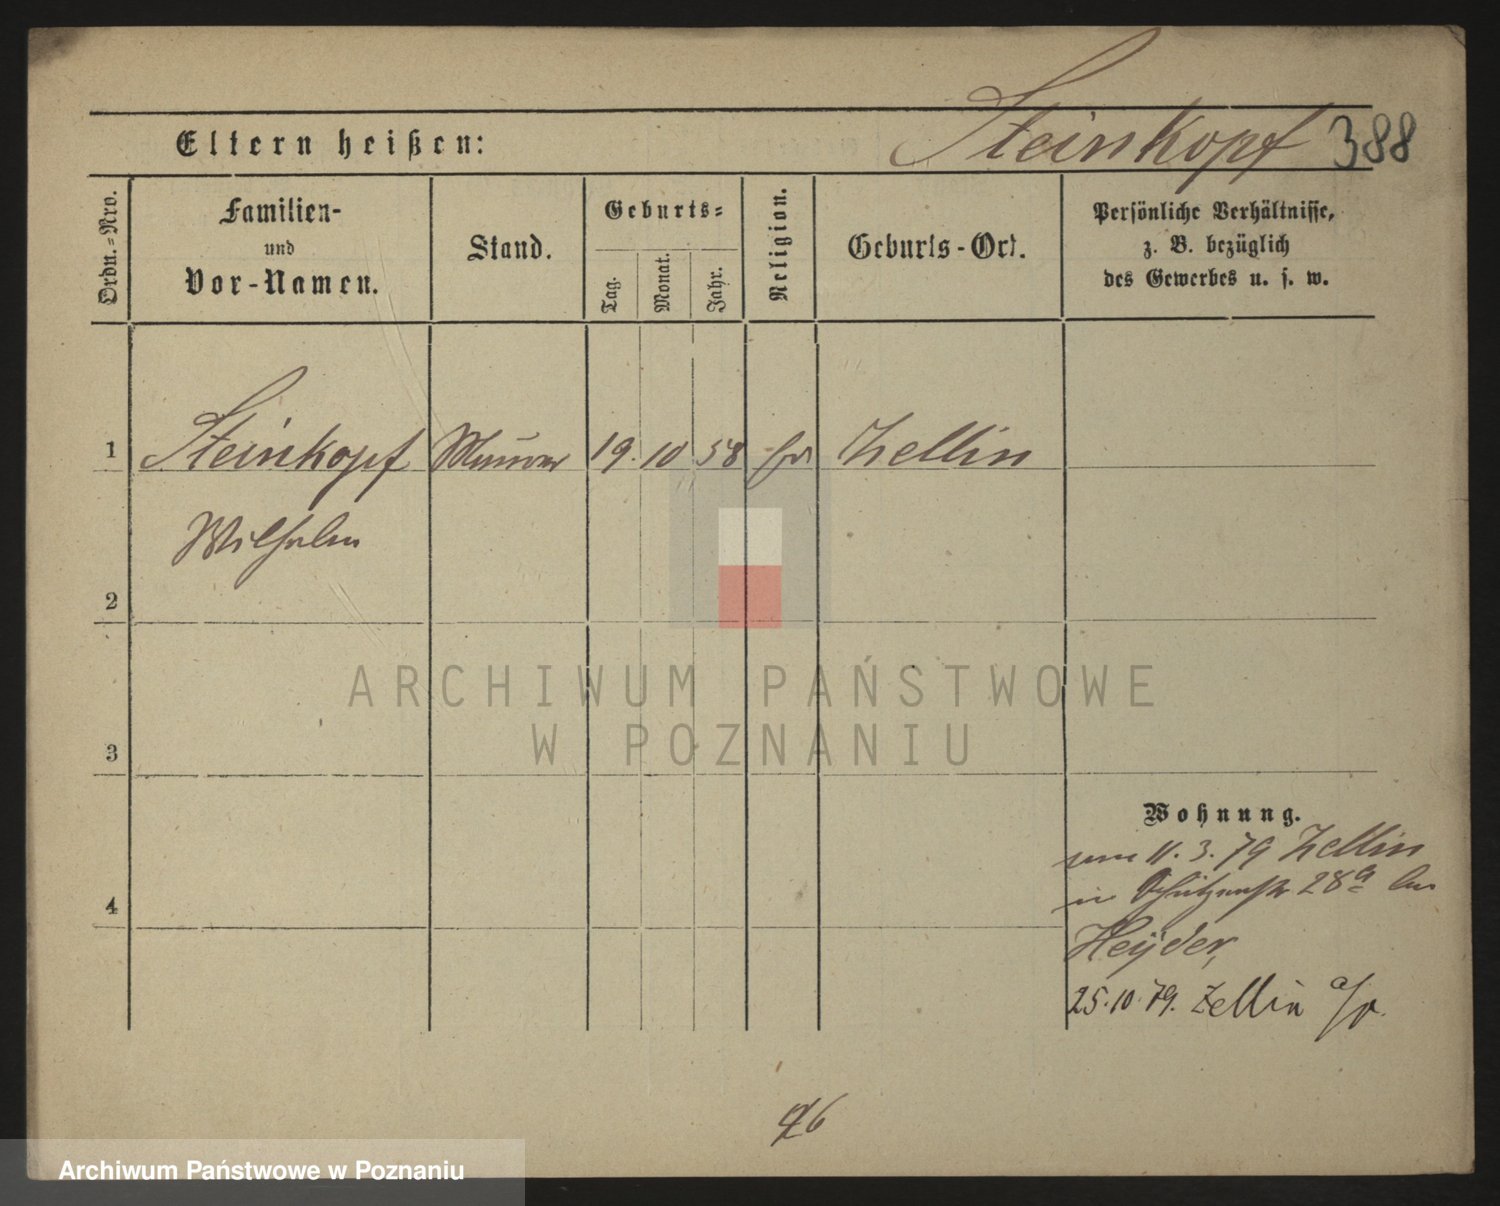 Steinkopf 388
Eltern heißen:
Ordn.=Nro.
Familien-
und
Vor-Namen.
Stand.
Geburts=
Tag.
Monat.
Jahr.
Religion.
Geburts-Ort.
Persönliche Verhältnisse,
z. B. bezüglich
des Gewerbes u. s. w.
1 Steinkopf Maurer 19. 10 58 Zellin
Wilhelm
2
ARCHIWUM PAŃSTWOWE
W POZNANIU
3
Wohnung.
11. 3. 79 Zellin
in Schützenstr 28a bei
4
Heyder,
25.10.79. Zellin
Archiwum Państwowe w Poznaniu